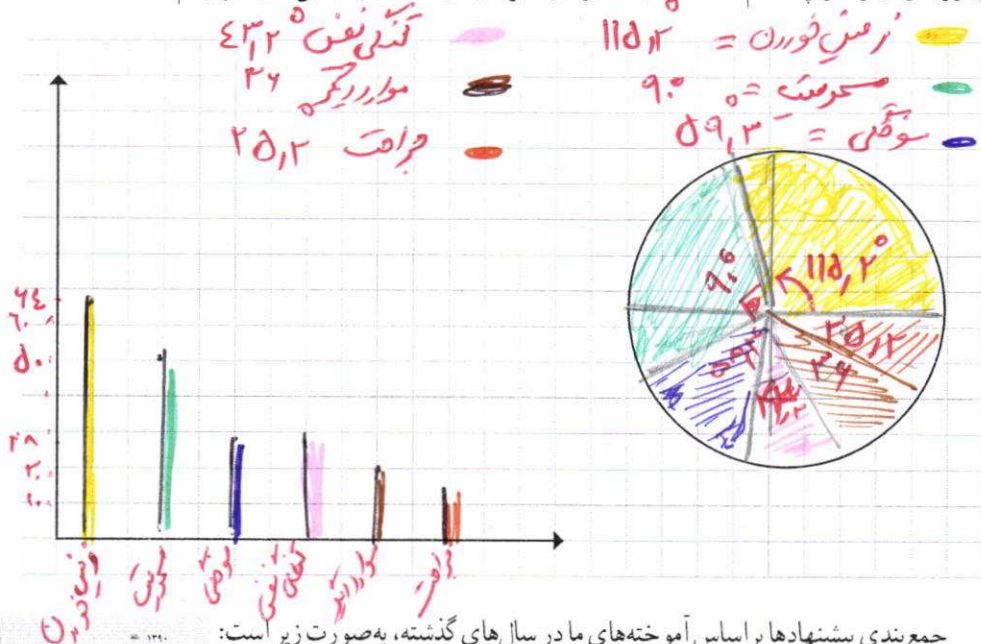 زمین خوردن = ۱۱۵٫۲°
مسمومیت = ۹۰°
سوختگی = ۵۹٫۳°
تنگی نفس ۴۳٫۲°
موارد دیگر ۳۶°
جراحت ۲۵٫۲
۱۱۵٫۲°
۹۰°
۲۵٫۲
۳۶
۴۳٫۲
۶۴
۶۰
۵۰
۲۸
۲۰
۱۰
زمین خوردن
مسمومیت
سوختگی
تنگی نفس
موارد دیگر
جراحت
جمع‌بندی پیشنهادها بر اساس آموخته‌های ما در سال‌های گذشته، به‌صورت زیر است: